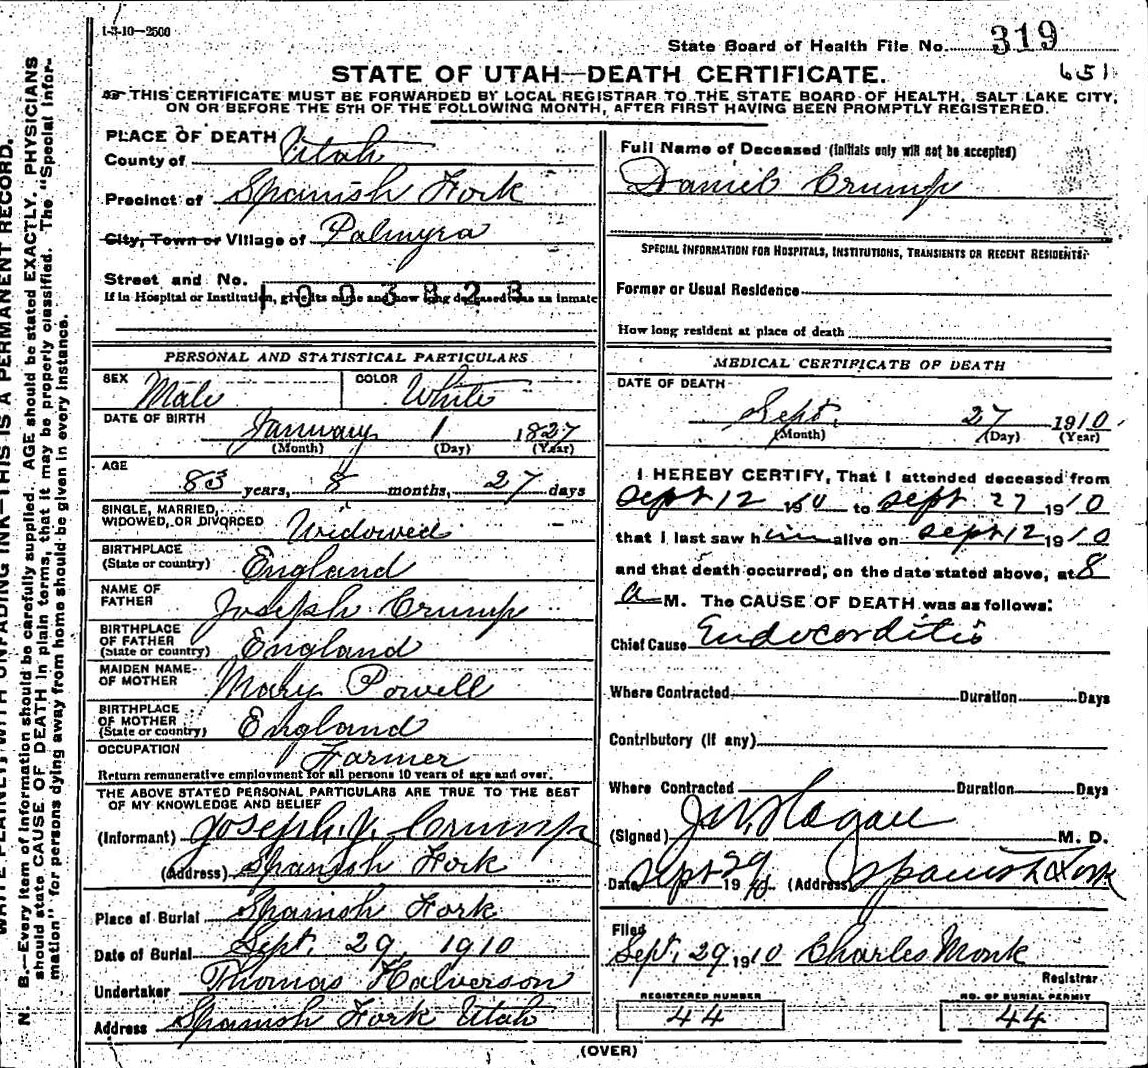 1-3-10—2500
State Board of Health File No. 319
651
STATE OF UTAH—DEATH CERTIFICATE.
THIS CERTIFICATE MUST BE FORWARDED BY LOCAL REGISTRAR TO THE STATE BOARD OF HEALTH, SALT LAKE CITY,
ON OR BEFORE THE 5TH OF THE FOLLOWING MONTH, AFTER FIRST HAVING BEEN PROMPTLY REGISTERED.
PLACE OF DEATH
County of Utah
Precinct of Spanish Fork
City, Town or Village of Palmyra
Street and No.
1003823
If in Hospital or Institution, give its name and how long deceased was an inmate
PERSONAL AND STATISTICAL PARTICULARS
SEX Male COLOR White
DATE OF BIRTH January 1 1827
(Month) (Day) (Year)
AGE 83 years, 8 months, 27 days
SINGLE, MARRIED,
WIDOWED, OR DIVORCED Widowed
BIRTHPLACE
(State or country) England
NAME OF
FATHER Joseph Crump
BIRTHPLACE
OF FATHER
(State or country) England
MAIDEN NAME
OF MOTHER Mary Powell
BIRTHPLACE
OF MOTHER
(State or country) England
OCCUPATION Farmer
Return remunerative employment for all persons 10 years of age and over.
THE ABOVE STATED PERSONAL PARTICULARS ARE TRUE TO THE BEST
OF MY KNOWLEDGE AND BELIEF
(Informant) Joseph Crump
(Address) Spanish Fork
Place of Burial Spanish Fork
Date of Burial Sept. 29 1910
Undertaker Thomas Halverson
Address Spanish Fork Utah
Full Name of Deceased (Initials only will not be accepted)
Daniel Crump
SPECIAL INFORMATION FOR HOSPITALS, INSTITUTIONS, TRANSIENTS OR RECENT RESIDENTS:
Former or Usual Residence
How long resident at place of death
MEDICAL CERTIFICATE OF DEATH
DATE OF DEATH
Sept. 27 1910
(Month) (Day) (Year)
I HEREBY CERTIFY, That I attended deceased from
Sept 12 1910 to Sept 27 1910
that I last saw him alive on Sept 12 1910
and that death occurred, on the date stated above, at 8
a M. The CAUSE OF DEATH was as follows:
Chief Cause Endocorditis
Where Contracted Duration Days
Contributory (if any)
Where Contracted Duration Days
(Signed) Hagan M. D.
Date Sept 29 1910 (Address) Spanish Fork
Filed
Sept. 29 1910 Charles Monk
Registrar
REGISTERED NUMBER
44
NO. OF BURIAL PERMIT
44
(OVER)
WRITE PLAINLY WITH UNFADING INK—THIS IS A PERMANENT RECORD.
N. B.—Every item of information should be carefully supplied. AGE should be stated EXACTLY. PHYSICIANS
should state CAUSE OF DEATH in plain terms, that it may be properly classified. The "Special Infor-
mation" for persons dying away from home should be given in every instance.